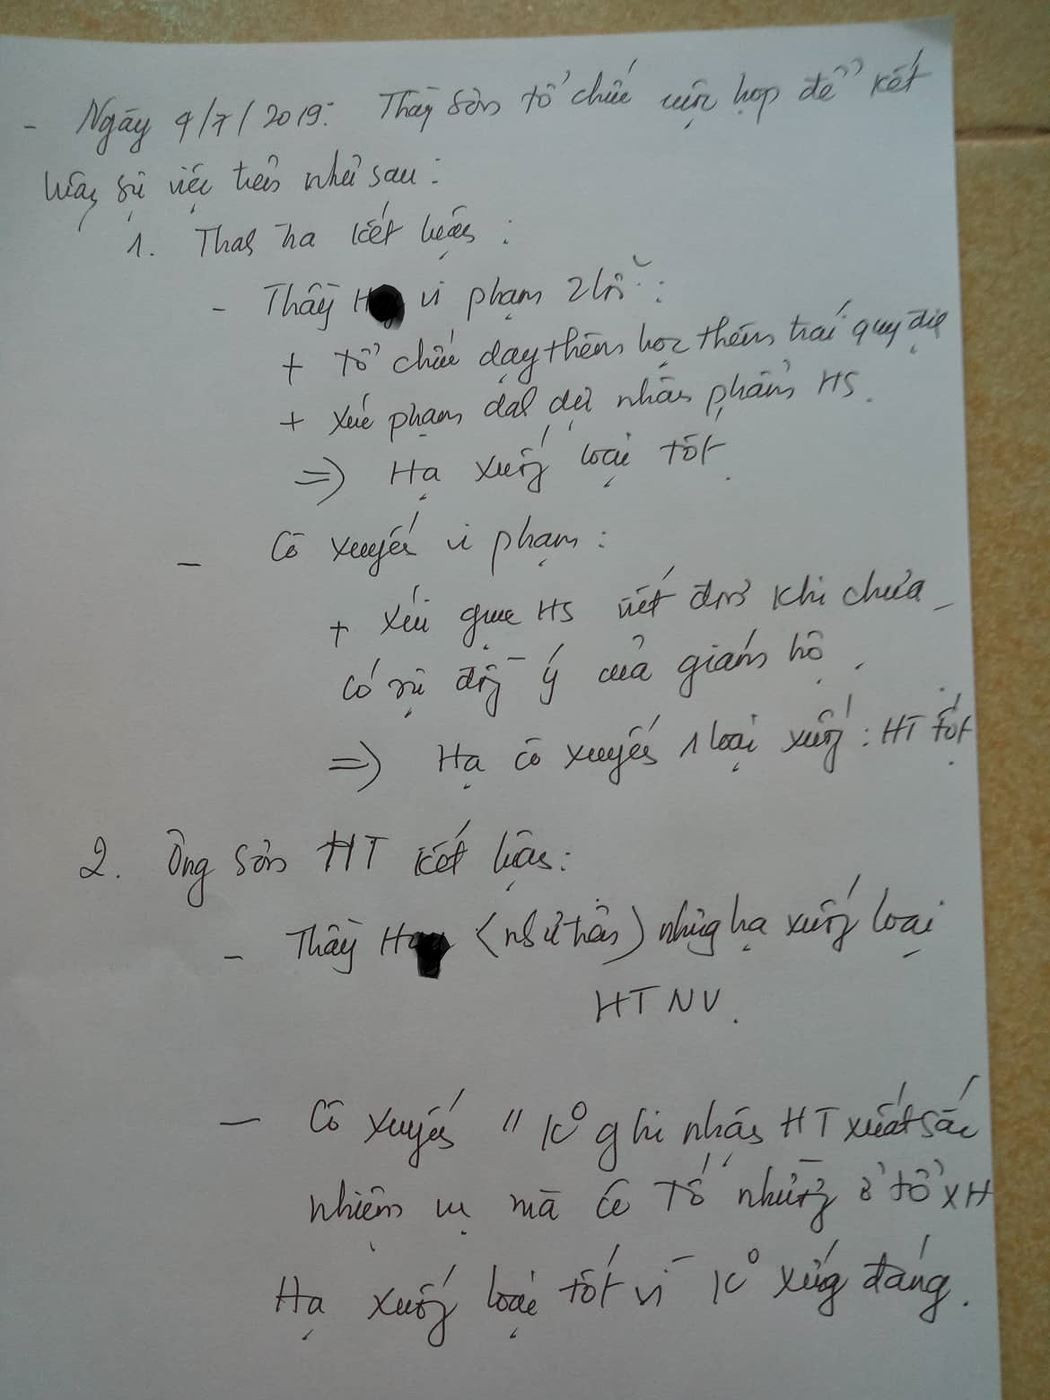 - Ngày 9/7/2019: Thầy Sơn tổ chức cuộc họp để kết
luận sự việc trên như sau:
1. Thanh tra kết luận:
- Thầy H vi phạm 2 lỗi:
+ tổ chức dạy thêm học thêm trái quy định
+ xúc phạm danh dự nhân phẩm HS.
=> Hạ xuống loại tốt.
- Cô Xuyến vi phạm:
+ xúi giục HS viết đơn khi chưa
có sự đồng ý của giám hộ.
=> Hạ cô Xuyến 1 loại xuống: HT tốt
2. Ông Sơn HT kết luận:
- Thầy H (như trên) nhưng hạ xuống loại
HTNV.
- Cô Xuyến " K° ghi nhận HT xuất sắc
nhiệm vụ mà có Tố nhưng ở tổ XH
Hạ xuống loại tốt vì K° xứng đáng.